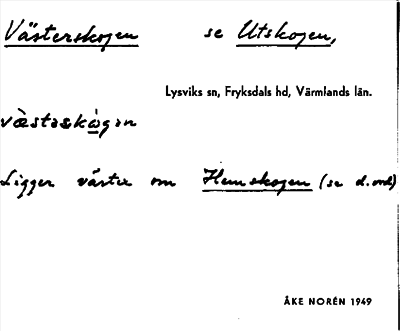 Västerskogen se Utskogen,
Lysviks sn, Fryksdals hd, Värmlands län.
Ligger väster om Hemskogen (se d. ord)
ÅKE NORÉN 1949